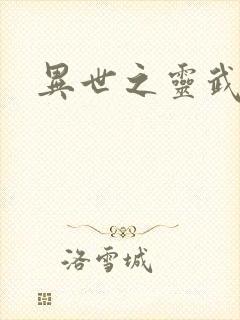 異世之靈武
洛雪城